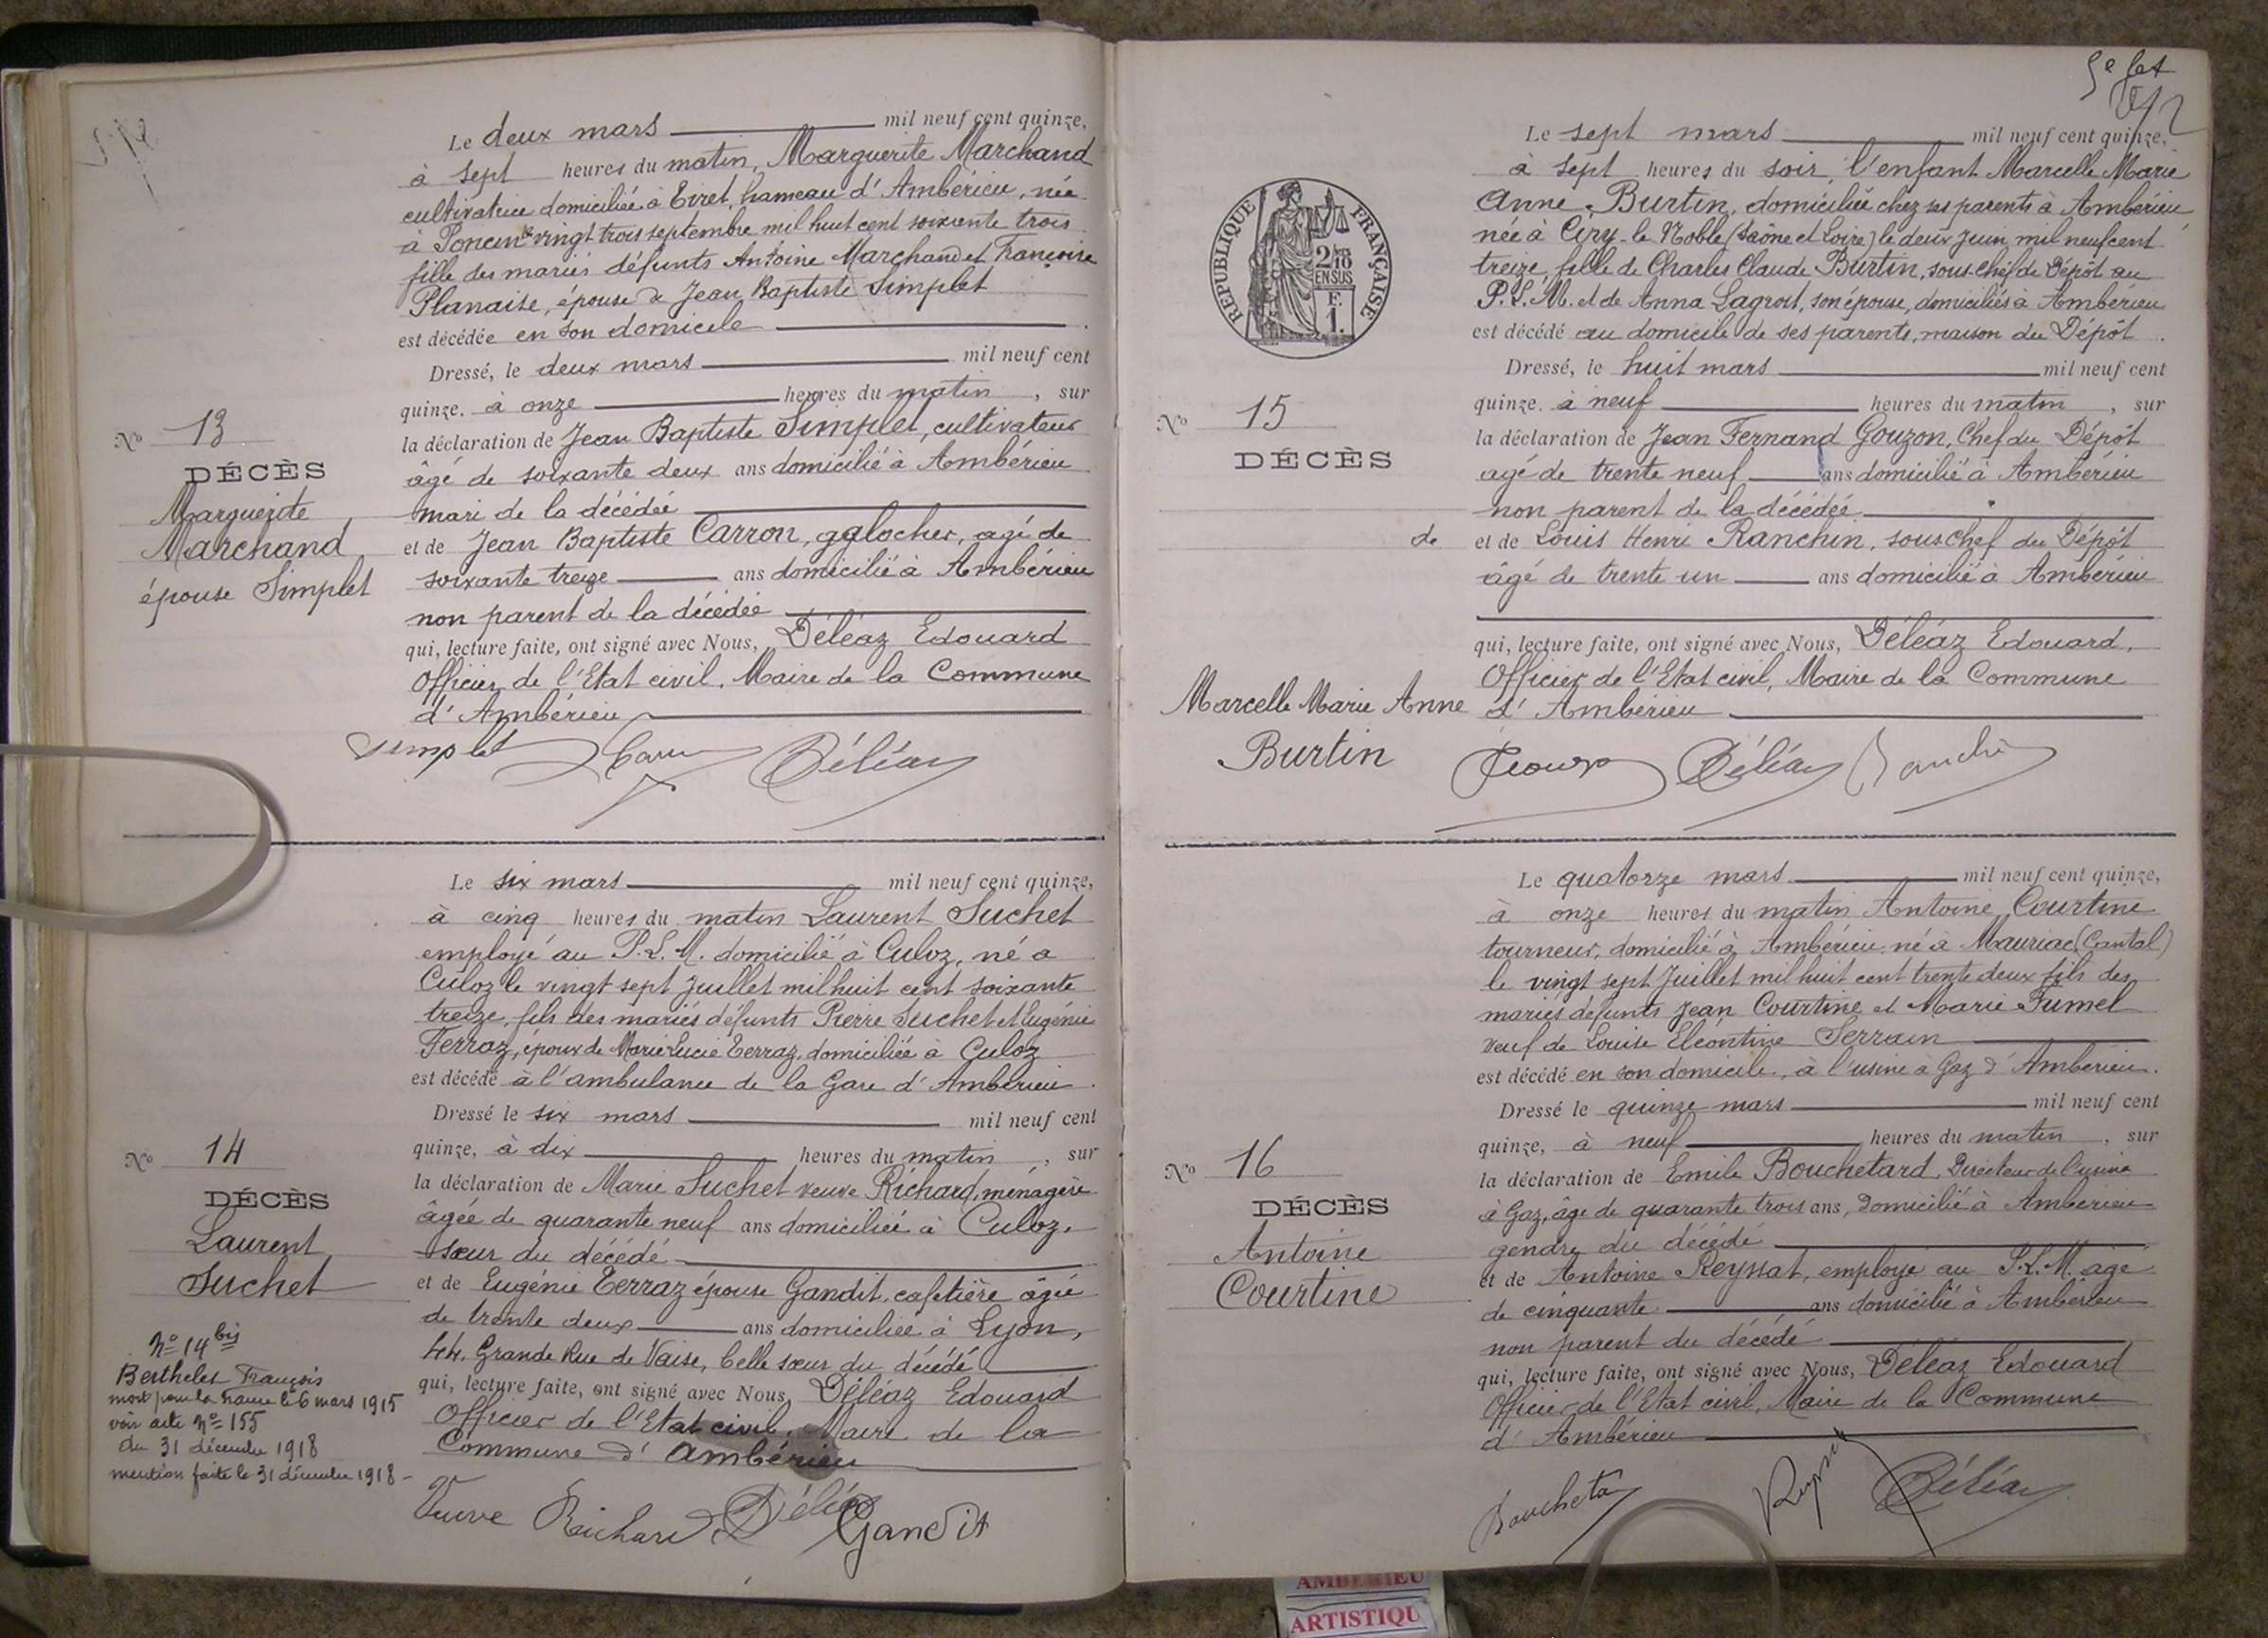 Le deux mars mil neuf cent quinze,
à sept heures du matin, Marguerite Marchand
cultivatrice domiciliée à Tiret, hameau d'Ambérieu, née
à Poncin le vingt trois septembre mil huit cent soixante trois
fille des mariés défunts Antoine Marchand et Françoise
Planaise, épouse de Jean Baptiste Simplet
est décédée en son domicile
Dressé, le deux mars mil neuf cent
quinze, à onze heures du matin, sur
la déclaration de Jean Baptiste Simplet, cultivateur
âgé de soixante deux ans domicilié à Ambérieu
mari de la décédée
et de Jean Baptiste Carron, galocher, agé de
soixante treize ans domicilié à Ambérieu
non parent de la décédée
qui, lecture faite, ont signé avec Nous, Déléaz Edouard
Officier de l'Etat civil, Maire de la Commune
d'Ambérieu
Simplet Carron Déléaz
No 13
DÉCÈS
Marguerite
Marchand
épouse Simplet
Le six mars mil neuf cent quinze,
à cinq heures du matin Laurent Suchet
employé au P.L.M. domicilié à Culoz, né a
Culoz le vingt sept Juillet mil huit cent soixante
treize, fils des mariés défunts Pierre Suchet et Eugénie
Ferraz, époux de Marie Lucie Terraz, domiciliée à Culoz
est décédé à l'ambulance de la Gare d'Ambérieu.
Dressé le six mars mil neuf cent
quinze, à dix heures du matin, sur
la déclaration de Marie Suchet veuve Richard, ménagère
âgée de quarante neuf ans domiciliée à Culoz,
sœur du décédé
et de Eugénie Terraz épouse Gandit, cafetière âgée
de trente deux ans domiciliée à Lyon,
44, Grande Rue de Vaise, belle sœur du décédé
qui, lecture faite, ont signé avec Nous, Déléaz Edouard
Officier de l'Etat civil, Maire de la
Commune d'Ambérieu
Veuve Richard Déléaz Gandit
No 14
DÉCÈS
Laurent
Suchet
No 14 bis
Berthelet François
mort pour la France le 6 mars 1915
voir acte No 155
du 31 décembre 1918
mention faite le 31 décembre 1918 -
5e fet
REPUBLIQUE FRANÇAISE
2/10
EN SUS
F.
1.
Le sept mars mil neuf cent quinze,
à sept heures du soir, l'enfant Marcelle Marie
Anne Burtin, domiciliée chez ses parents à Ambérieu
née à Ciry-le Noble (Saône et Loire) le deux Juin mil neuf cent
treize, fille de Charles Claude Burtin, sous chef de Dépôt au
P.L.M. et de Anna Lagrost, son épouse, domiciliés à Ambérieu
est décédé au domicile de ses parents, maison du Dépôt.
Dressé, le huit mars mil neuf cent
quinze, à neuf heures du matin, sur
la déclaration de Jean Fernand Gouzon, Chef du Dépôt
agé de trente neuf ans domicilié à Ambérieu
non parent de la décédée
de et de Louis Henri Ranchin, sous chef du Dépôt
âgé de trente un ans domicilié à Ambérieu
qui, lecture faite, ont signé avec Nous, Déléaz Edouard,
Officier de l'Etat civil, Maire de la Commune
d'Ambérieu
Gouzon Déléaz Ranchin
No 15
DÉCÈS
Marcelle Marie Anne
Burtin
Le quatorze mars mil neuf cent quinze,
à onze heures du matin Antoine Courtine
tourneur, domicilié à Ambérieu né à Mauriac (Cantal)
le vingt sept Juillet mil huit cent trente deux fils des
mariés défunts Jean Courtine et Marie Fumel
veuf de Louise Eléontine Serrain
est décédé en son domicile, à l'usine à Gaz d'Ambérieu.
Dressé le quinze mars mil neuf cent
quinze, à neuf heures du matin, sur
la déclaration de Emile Bouchetard, Directeur de l'usine
à Gaz, âgé de quarante trois ans, domicilié à Ambérieu
gendre du décédé
et de Antoine Reyssat, employé au P.L.M. agé
de cinquante ans domicilié à Ambérieu
non parent du décédé
qui, lecture faite, ont signé avec Nous, Déléaz Edouard
Officier de l'Etat civil, Maire de la Commune
d'Ambérieu
Déléaz
No 16
DÉCÈS
Antoine
Courtine
AMBERIEU
ARTISTIQU